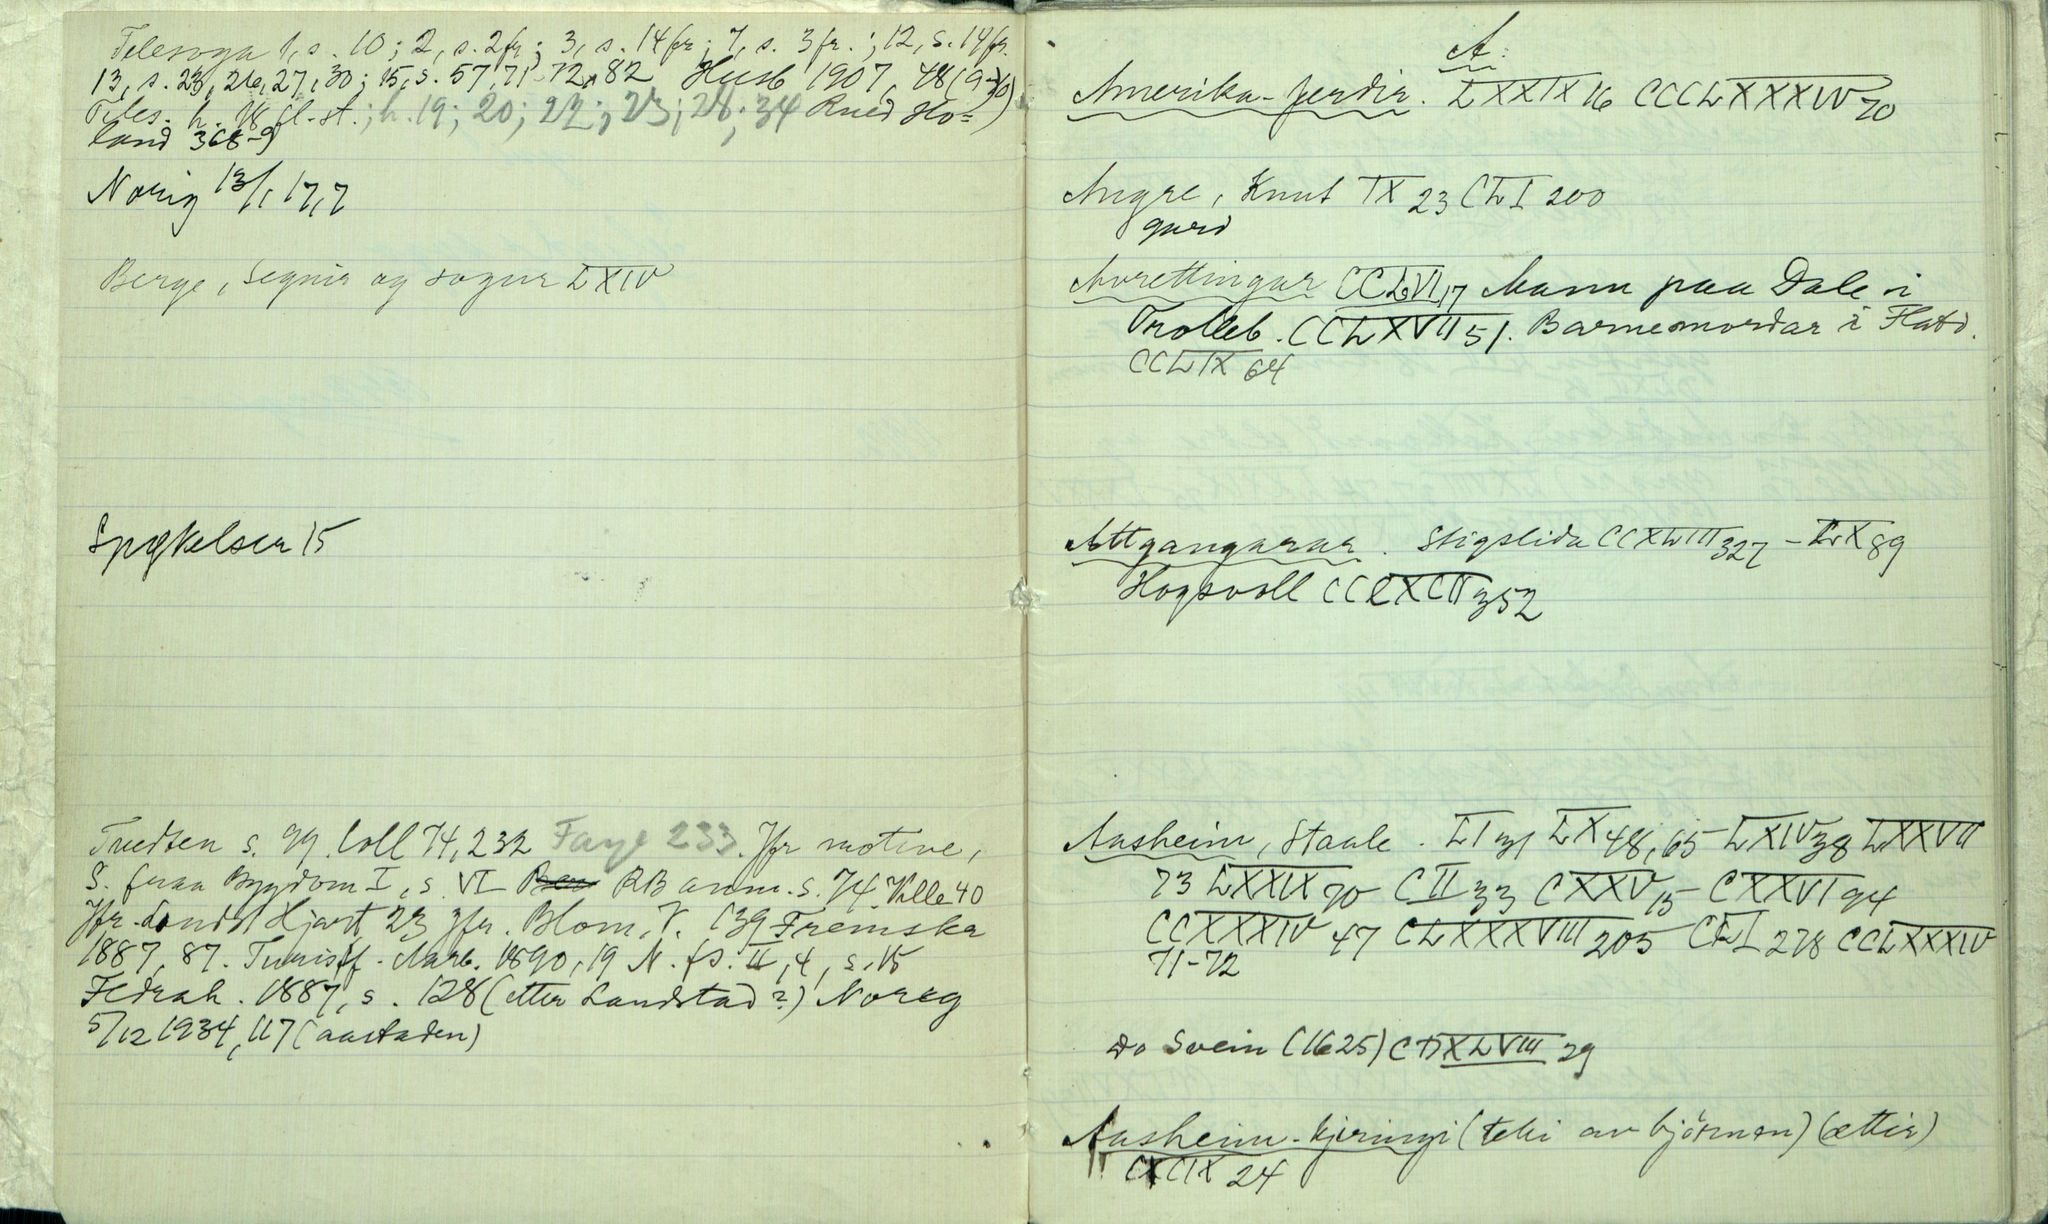 Telesoga 1, s. 10; 2, s. 2 fr; 3, s. 14 fr; 7, s. 3 fr.; 12, s. 14 fr.
13, s. 23, 26, 27, 30; 15, s. 57, 71 72, 82 Husb 1907, 48 (9-30)
Teles. h. 18 fl. st.; h. 19; 20; 22; 23; 28; 34 Rued Ho=
land 368-9
Norig 13/1 17,7
Berge, Segnir og sogur LXIV
Spøkelser 15
Truedsen s. 99. Coll 74, 232 Faye 233. Jfr motive,
S. fraa Bygdom I, s. VI RB anm. s. 74. Ville 40
Jfr. Landst Hjart. 23 jfr. Blom, V. 139 Fremskr
1887, 87. Turistf. Aarb. 1890, 19 N. fs. II, 4, s. 15
Fedrah. 1887, s. 128 (etter Landstad?) Noreg
5/12 1934, 117 (aastaden)
A:
Amerika-ferdir. LXXIX 16 CCCLXXXIV 70
Angre, Knut IX 23 CLI 200
gard
Avrettingar CCLVI 17 Mann paa Dale i
Trolleb. CCLXVII 51. Barnemordar i Flatd.
CCLIX 64
Attgangarar. Stigslida CCXLIII 327 - LX 89
Hogsvoll CCLXCII 352
Aasheim, Staale. LI 31 LX 48, 65 LXIV 38 LXXVII
73 LXXIX 70 CII 33 CXXV 15 CXXVI 94
CCXXXIV 47 CLXXXVIII 205 CLI 278 CCLXXXIV
71-72
Do Svein (1625) CDXLVIII 29
Aasheim-kjeringi (teki av bjørnen) (ættir)
CXCIX 24